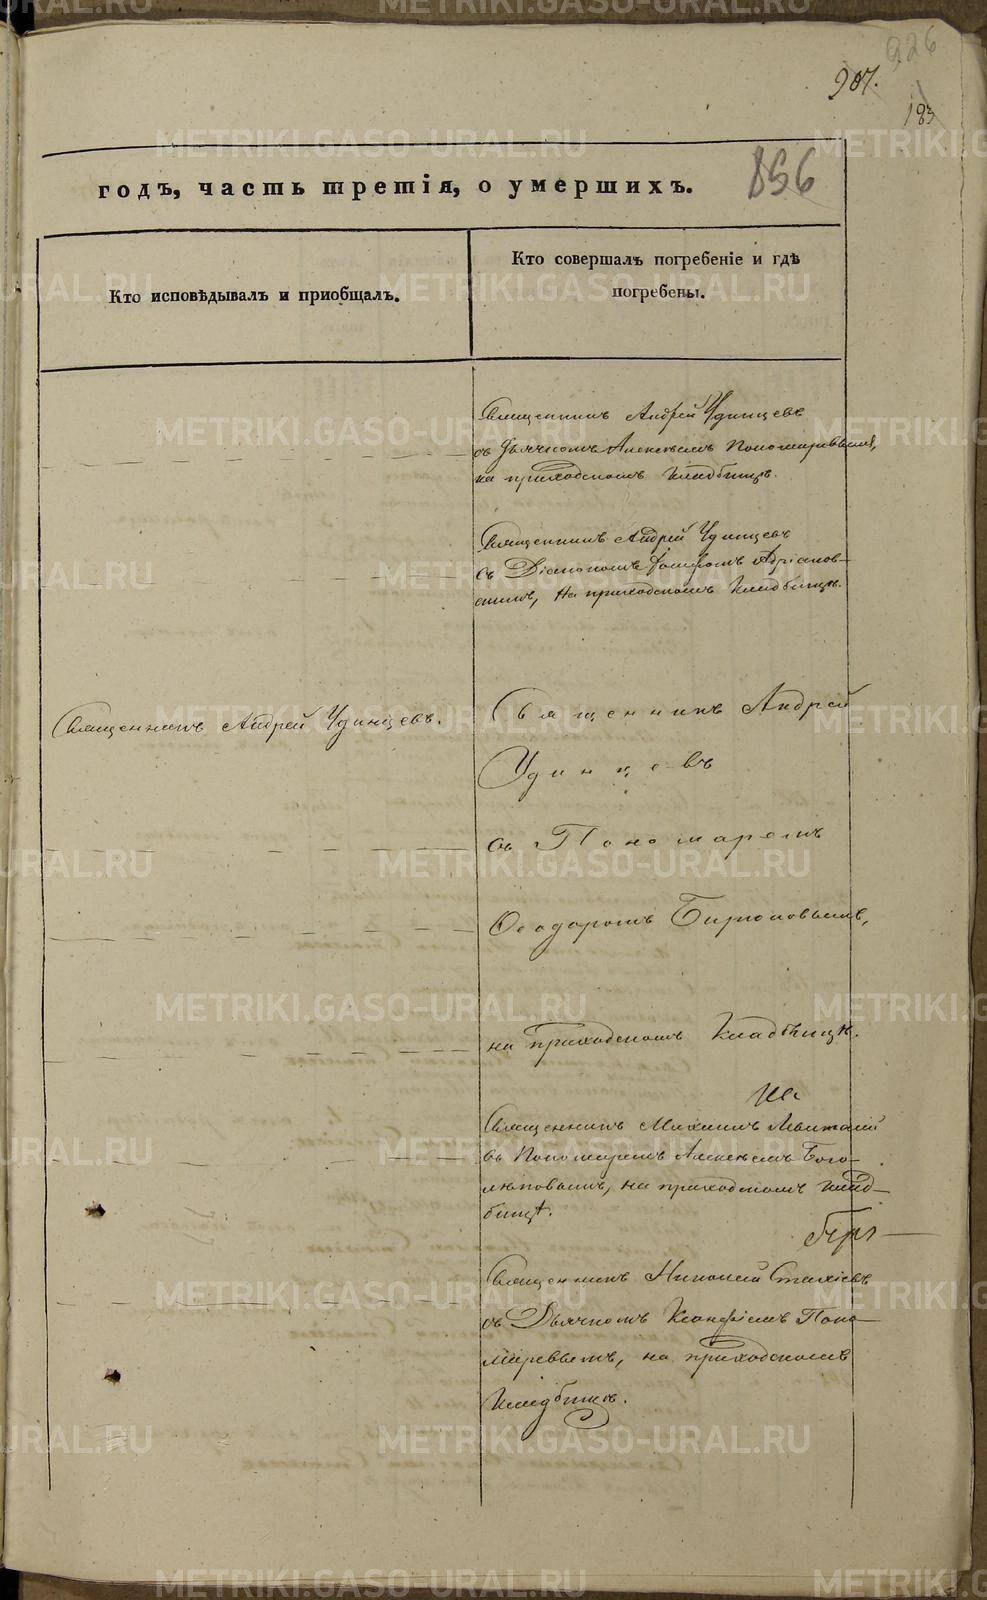 226
907.
183
856
годъ, часть третія, о умершихъ.
Кто исповѣдывалъ и приобщалъ.
Кто совершалъ погребеніе и гдѣ
погребены.
Священникъ Андрей Удинцевъ
съ Дьячкомъ Алексѣемъ Пономаревымъ,
на приходскомъ кладбищѣ.
Священникъ Андрей Удинцевъ
съ Діакономъ Іосифомъ Адріанов-
скимъ, на приходскомъ кладбищѣ.
Священникъ Андрей Удинцевъ.
Священникъ Андрей
Удинцевъ
съ Пономаремъ
Ѳеодоромъ Бирюковымъ,
на приходскомъ кладбищѣ.
Священникъ Михаилъ
съ Пономаремъ Алексѣемъ Бого-
любовымъ, на приходскомъ клад-
бищѣ.
Священникъ Николай Стахіевъ
съ Дьячкомъ Поно-
маревымъ, на приходскомъ
кладбищѣ.
METRIKI.GASO-URAL.RU